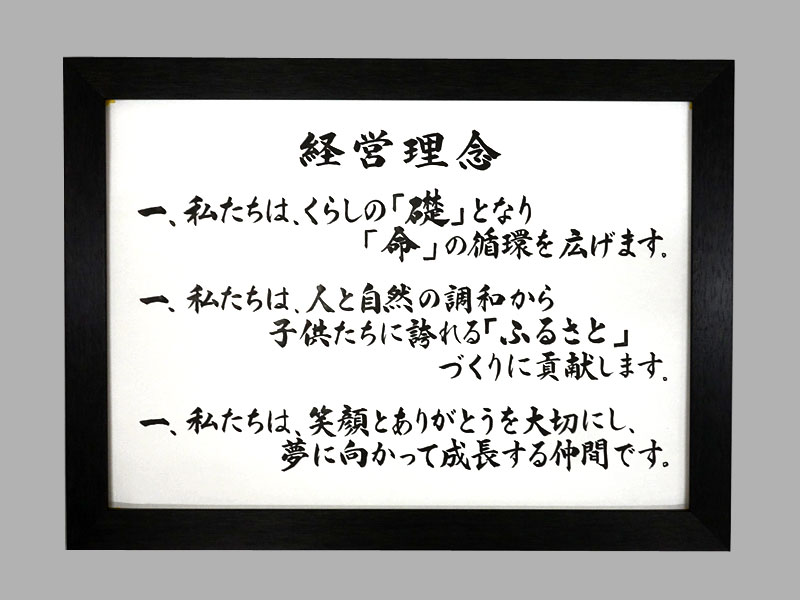 経営理念
一、私たちは、くらしの「礎」となり
「命」の循環を広げます。
一、私たちは、人と自然の調和から
子供たちに誇れる「ふるさと」
づくりに貢献します。
一、私たちは、笑顔とありがとうを大切にし、
夢に向かって成長する仲間です。